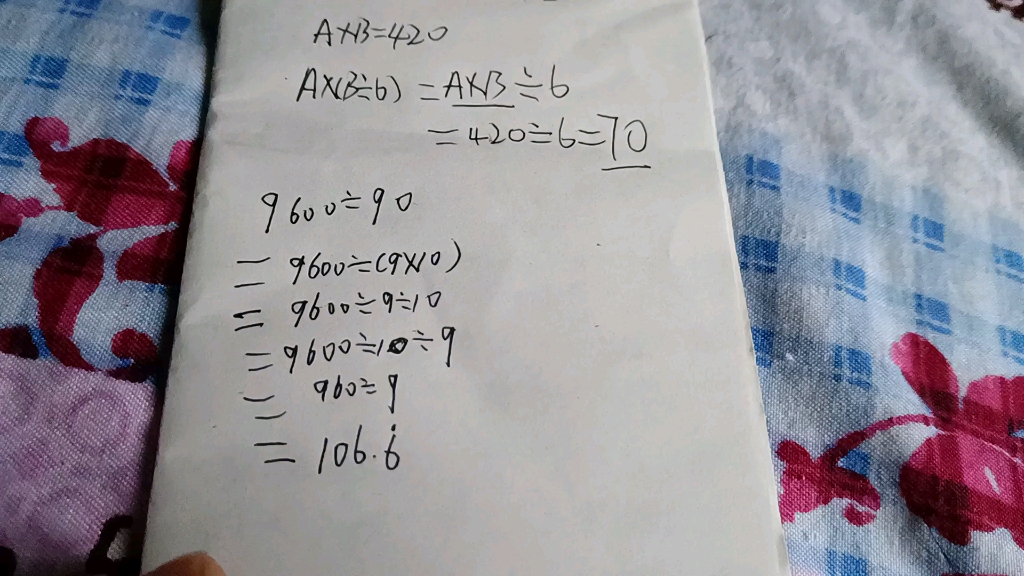 A×B=420
A×(B÷6) =A×B÷6
=420÷6=70
9600÷90
= 9600÷(9×10)
= 9600÷9÷10
=9600÷10÷9
= 960÷9
= 106.6̇